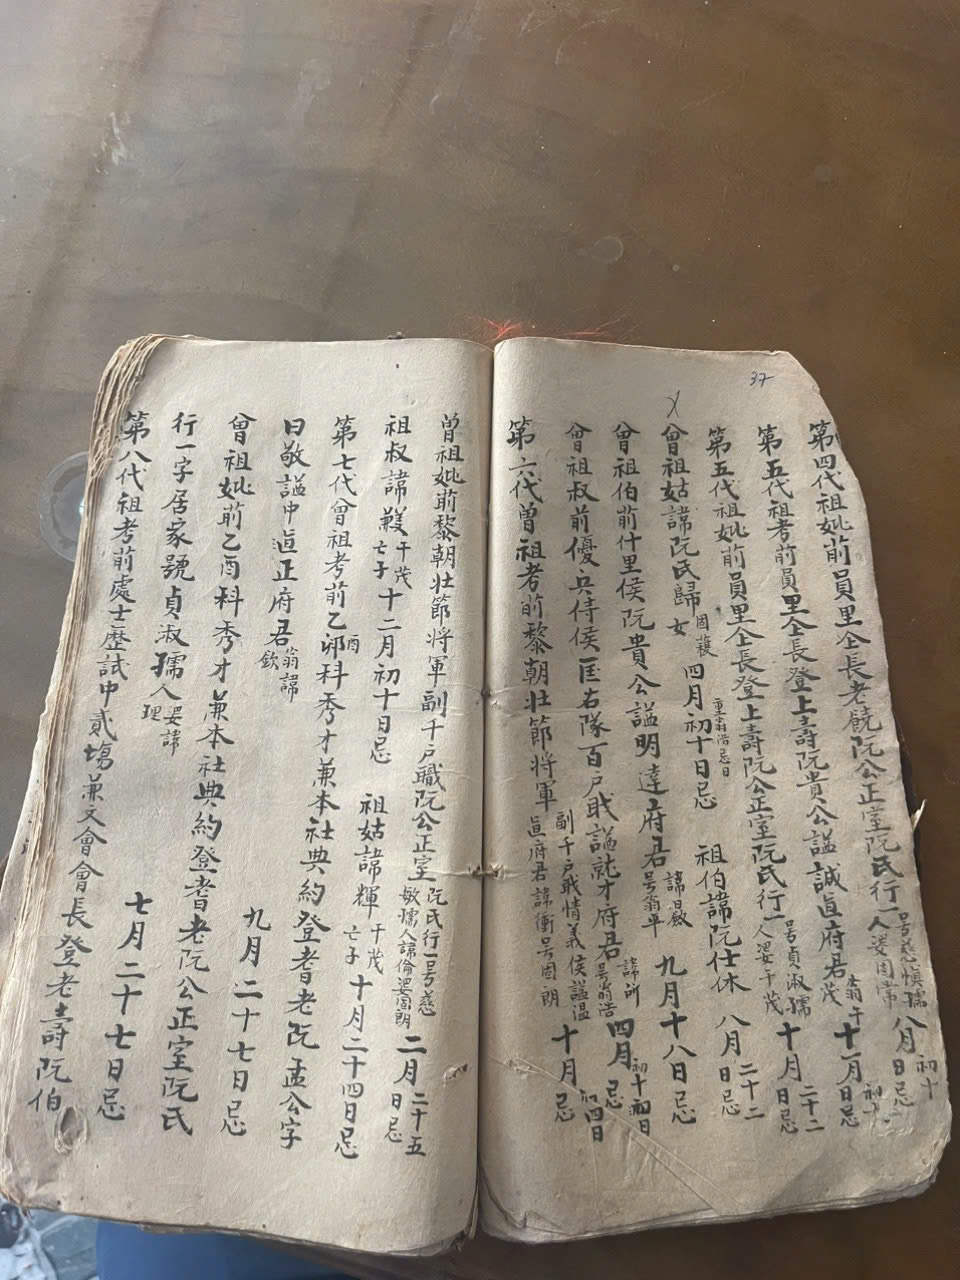 37
第四代祖妣前員里仝長老饒阮公正室阮氏行一人号慈慎孺婆固常八月初十日忌
第五代祖考前員里仝長登上壽阮貴公謚誠直府君翁于茂十一月初十日忌
第五代祖妣前員里仝長登上壽阮公正室阮氏行一号貞淑孺人婆于茂十月二十二日忌
曾祖姑諱阮氏歸女固護四月初十日忌重翁浩忌日 祖伯諱阮仕休八月二十二日忌
曾祖伯前什里侯阮貴公謚明達府君諱号翁卒九月十八日忌
曾祖叔前優兵侍侯匡右隊百戶職謚就才府君諱所号翁浩四月初十日忌
第六代曾祖考前黎朝壯節将軍副千戶職情義侯謚温直府君諱衝号固朗十月初四日忌
曾祖妣前黎朝壯節将軍副千戶職阮公正室阮氏行一号慈敏孺人諱偷婆固朗二月二十五日忌
祖叔諱于茂亡子十二月初十日忌 祖姑諱輝于茂亡子十月二十四日忌
第七代曾祖考前乙卯酉科秀才兼本社典約登耆老阮孟公字
日敬謚中直正府君翁諱欽 九月二十七日忌
曾祖妣前乙酉科秀才兼本社典約登耆老阮公正室阮氏
行一字居家號貞淑孺人婆諱理 七月二十七日忌
第八代祖考前處士歷試中貳塲兼文會會長登老壽阮伯